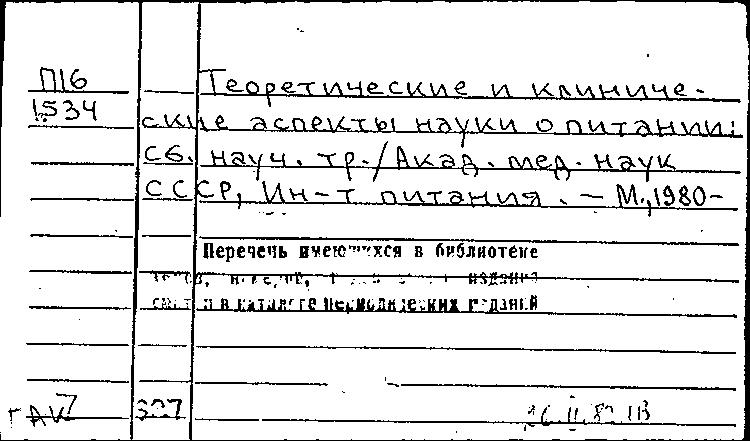 П16
1534
Теоретические и клиниче-
ские аспекты науки о питании:
Сб. науч. тр./Акад. мед. наук
СССР, Ин-т питания. — М., 1980-
Перечень имеющихся в библиотеке
издания
в каталоге периодических изданий